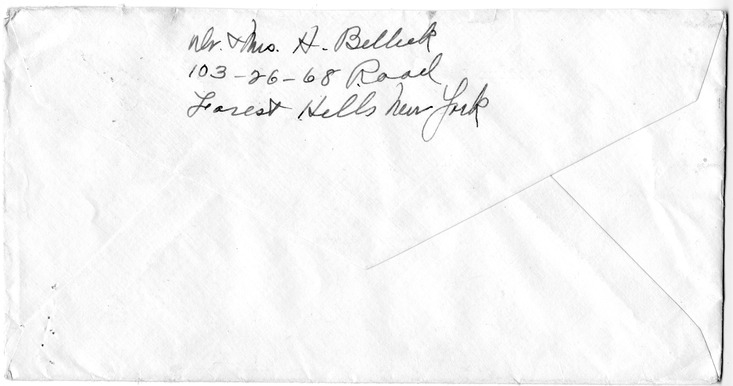 Dr. & Mrs. A. Belleck
103-26-68 Road
Forest Hills New York